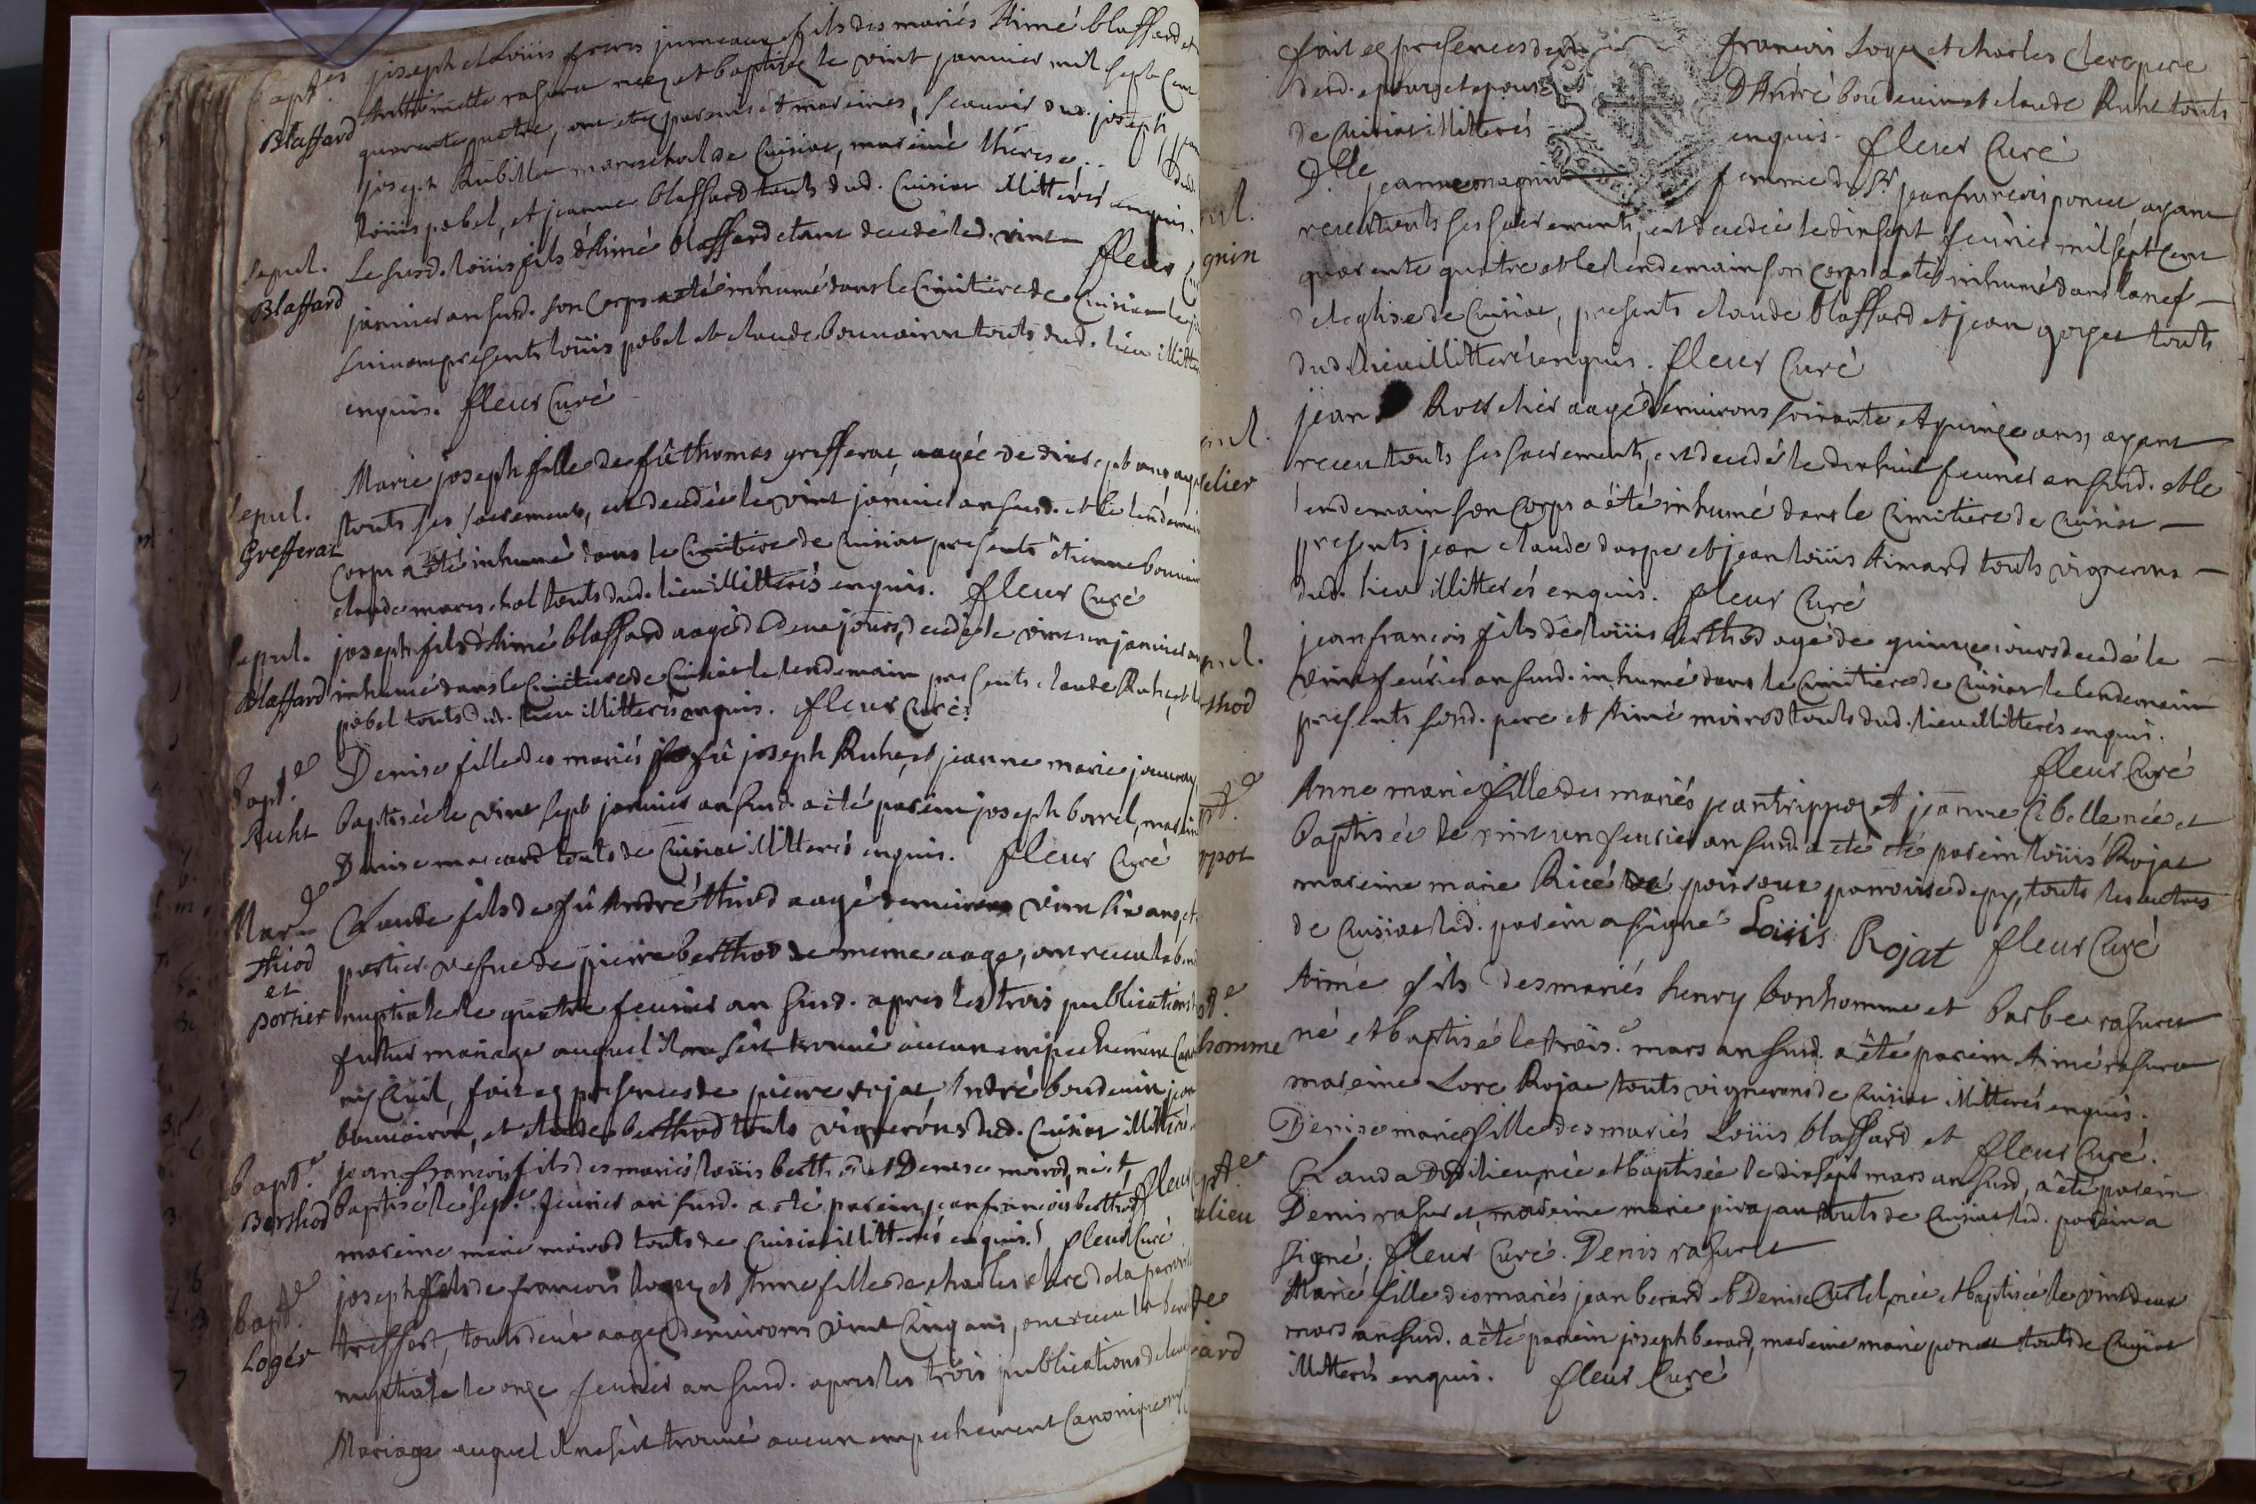 bapt.es
Blaffard
joseph et Loüis freres jumeaux fils des mariés Aimé blaffard et
Anthoinette rasurel néez et baptisez le vint janvier mil sept cent
quarente quatre, ont etez parrins et mareines, scauoir dud. joseph
joseph Rubillet mareschal de Cuisiat, mareine Therese
loüis pobel, et jeanne blaffard touts dud. Cuisiat illitterés enquis.
fleur
sepul.
Blaffard
Le susd. loüis fils d'Aimé blaffard etant decedé led. vint
januier an susd. son corps a été inhumé dans le Cimitiere de Cuisiat le
suiuant presents loüis pobel et claude bouuairon touts dud. lieu
enquis. fleur Curé
sepul.
Grefferat
Marie joseph fille de fû thomas grefferat, aagée de dix sept ans
touts ses sacrements, est decedée le vint januier an susd. et le lendemain
corps a été inhumé dans le Cimitiere de Cuisiat presents étienne
claude mareschal touts dud. lieu illitterés enquis. fleur Curé
sepul.
Blaffard
joseph fils d'Aimé blaffard aagé de deux jours, decedé le vint un januier
inhumé dans le Cimitiere de Cuisiat le lendemain presents claude Ruhet
pobel touts dud. lieu illitterés enquis. fleur Curé
bapt.e
Ruht
Denise fille des mariés fû joseph Ruhet, et jeanne marie
baptisée le vint sept januier an susd. a été parein joseph borrel,
Denise marcard touts de Cuisiat illitterés enquis. fleur Curé
Mar.e
thiod
et
portier
Claude fils de fû André thiod aagé d'enuirons vint six ans, et
portier vefue de pierre berthod de meme aage, ont receu la
nuptiale le quatre feurier an susd. apres les trois publications
futur mariage auquel il ne s'est trouué aucun empechement
ny Ciuil, fait ez presences de pierre rojat, André boudeuin
bouuairon, et claude berthod touts vignerons dud. Cuisiat
bapt.e
Berthod
jean françois fils des mariés loüis berthod et Denise moirod, né et
baptisé le sep.e feurier an susd. a eté parein jean francois berthod
mareine marie moirod touts de Cuisiat illitterés enquis. fleur Curé
bapt.e
Logér
joseph fils de francois logez et Anne fille de charles clerc de la
treffort, touts deux aagez d'enuirons vint cinq ans, ont receu la
nuptiale le onze feurier an susd. apres les trois publications de leur
Mariage auquel il ne s'est trouué aucun empechement Canonique
fait ez presences de francois Logez et charles clerc pere
desd. epoux et epouse D'André boudeuin et claude Ruht touts
de Cuisiat illitterés enquis. fleur Curé
D.lle jeanne magnin femme du S.r jean francois poncet, ayant
receu touts ses sacrements, est decedée le dix sept feurier mil sept cent
quarente quatre et le lendemain son corps a eté inhumé dans la nef
de l'eglise de Cuisiat, presents claude blaffard et jean goyet touts
dud. lieu illitterés enquis. fleur Curé
jean Rottelier aagé d'enuirons soixante et quinze ans, ayant
receu touts ses sacrements, est decedé le dix huit feurier an susd. et le
lendemain son corps a été inhumé dans le Cimitiere de Cuisiat
presents jean claude daspe et jean loüis Aimard touts vignerons
dud. lieu illitterés enquis. fleur Curé
jean françois fils de loüis berthod agé de quinze jours decedé le
vint feurier an susd. inhumé dans le Cimitiere de Cuisiat le lendemain
presents sond. pere et Aimé moirod touts dud. lieu illitterés enquis.
fleur Curé
Anne marie fille des mariés jean trippoz et jeanne Cibelle née et
baptisée le vint un feurier an susd. a eté parein loüis Rojat
mareine marie Ricé de poisoux parroisse de py, touts les autres
de Cuisiat led. parein a signé Loüis Rojat fleur Curé
Aimé fils des mariés henry bonhomme et barbe rasurel
né et baptisé le trois.e mars an susd. a été parein Aimé rasurel
mareine Lore Rojat touts vignerons de Cuisiat illitterés enquis.
fleur Curé.
Denise marie fille des mariés Loüis blaffard et
Clauda Dulieu, née et baptisée le dix sept mars an susd, a été parein
Denis rasurel, mareine marie pirajan touts de Cuisiat led. parein a
signé. fleur Curé. Denis rasurel
Marie fille des mariés jean berard et Denise Curtel, née et baptisée le vint deux
mars an susd. a été parein joseph berard, mareine marie poncet touts de Cuisiat
illitterés enquis. fleur Curé